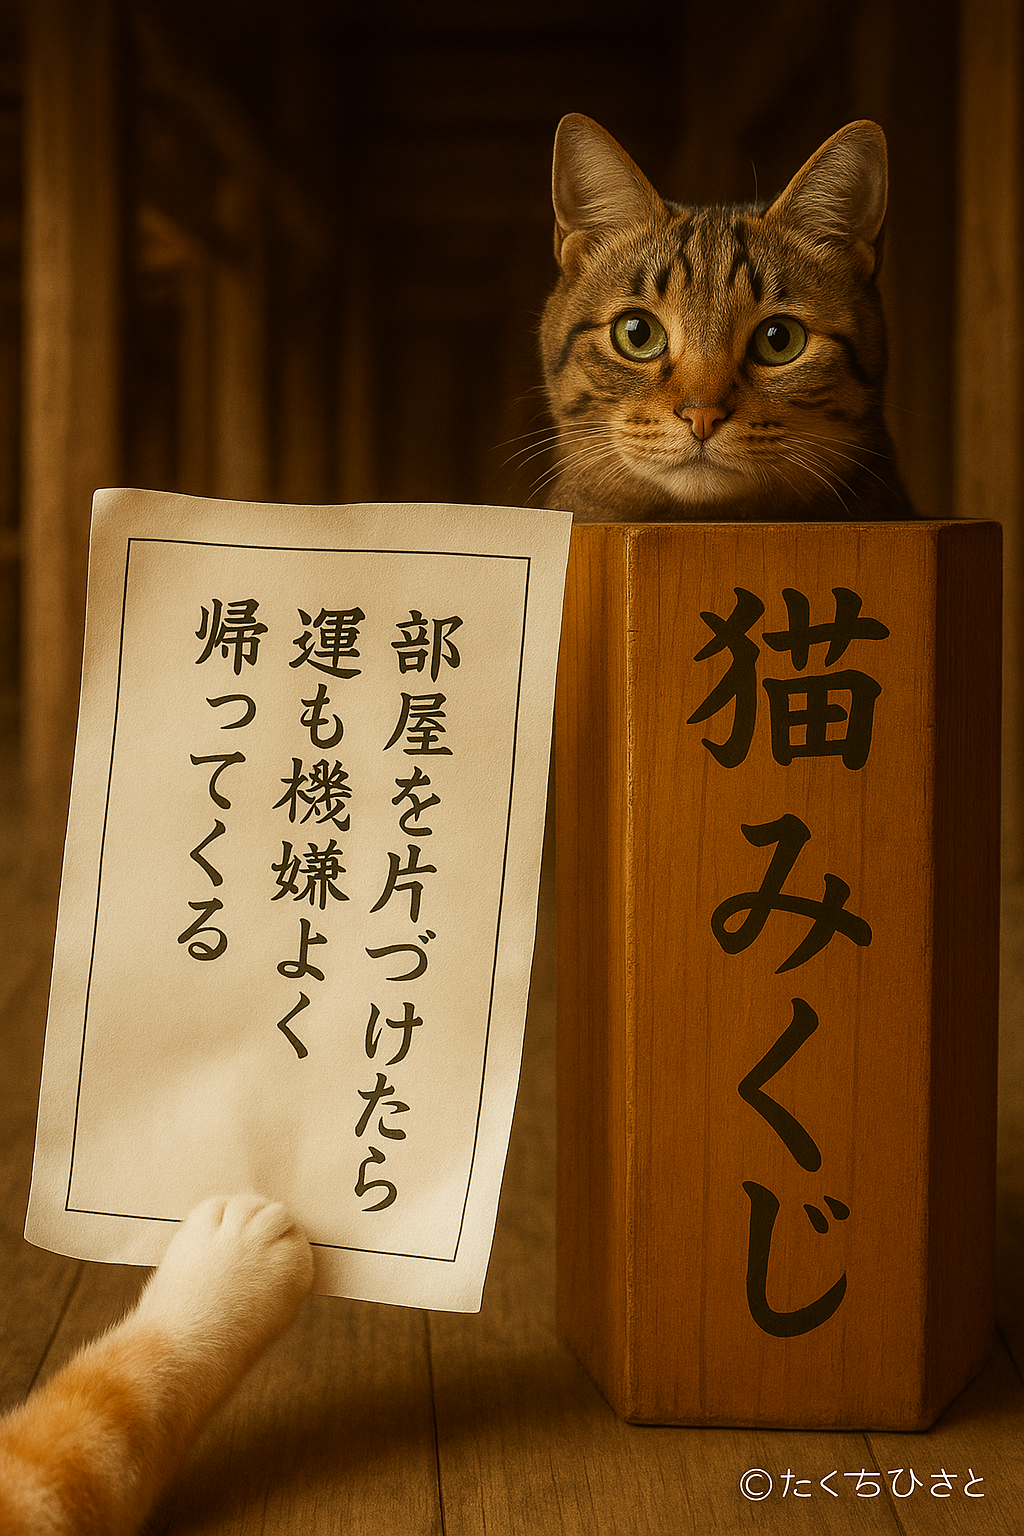 部屋を片づけたら
運も機嫌よく
帰ってくる
猫みくじ
©たくちひさと